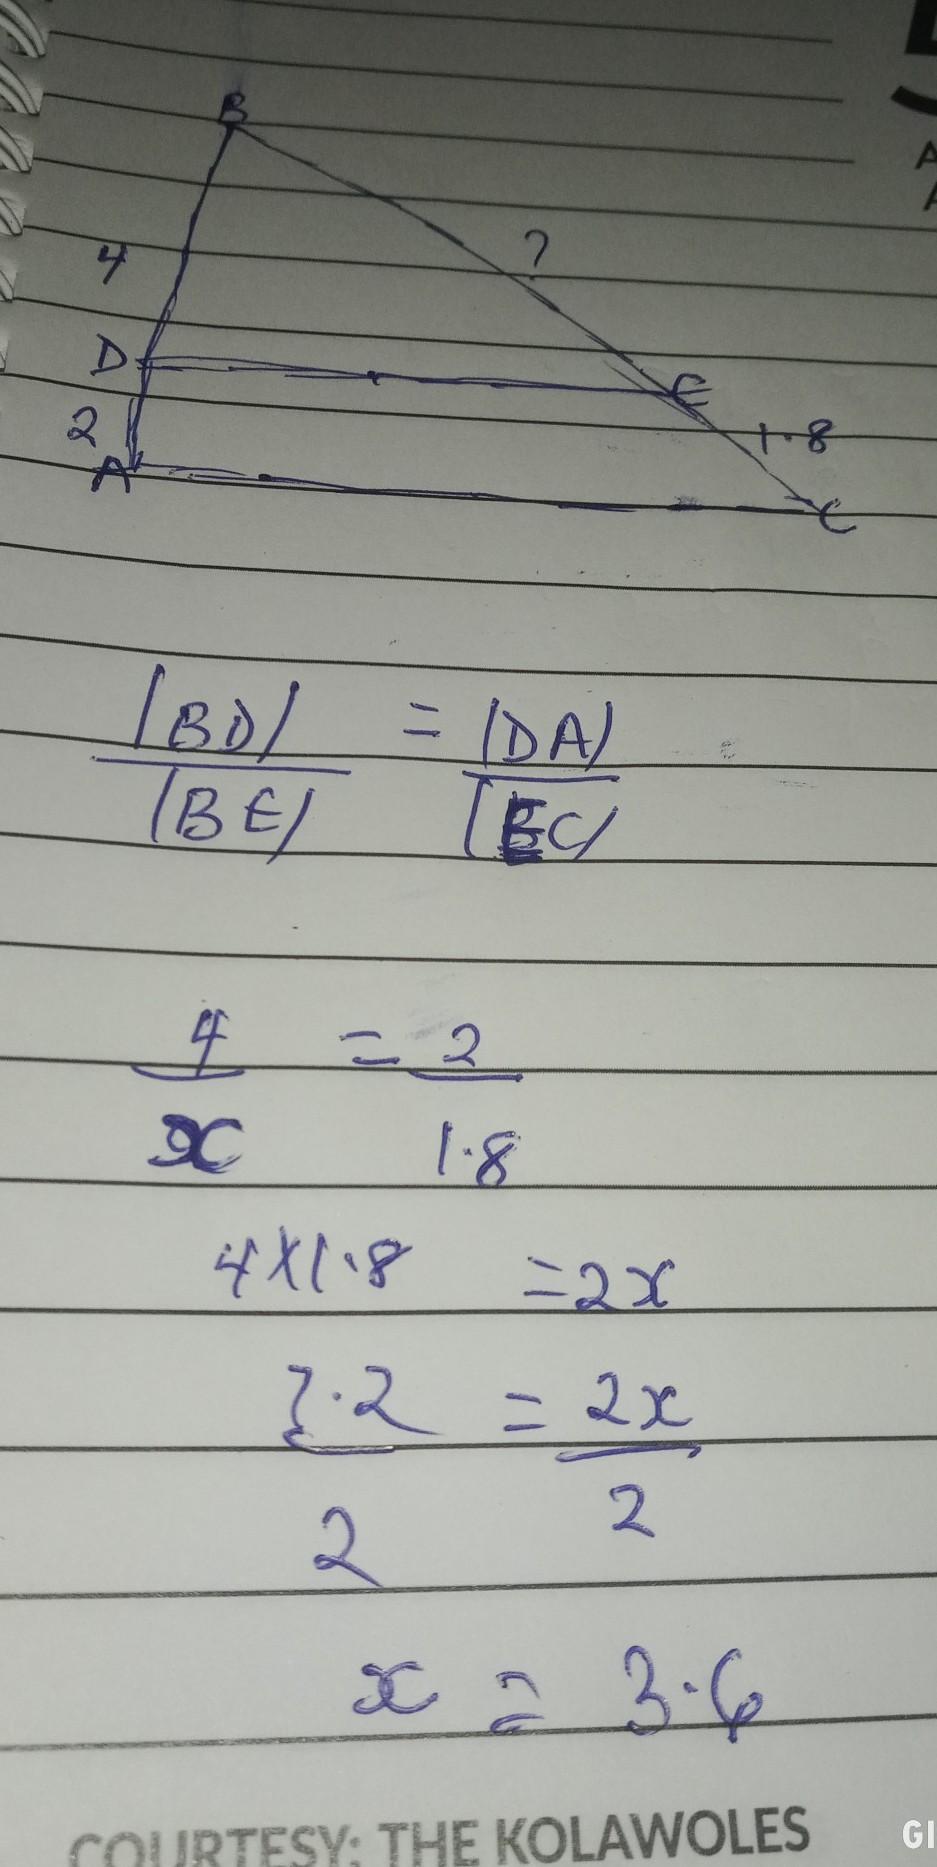 B
?
4
D
E
2
1.8
A
C
|BD| = |DA|
|BE| |EC|
4 = 2
x 1.8
4x1.8 = 2x
7.2 = 2x
2 2
x = 3.6
COURTESY: THE KOLAWOLES
GI